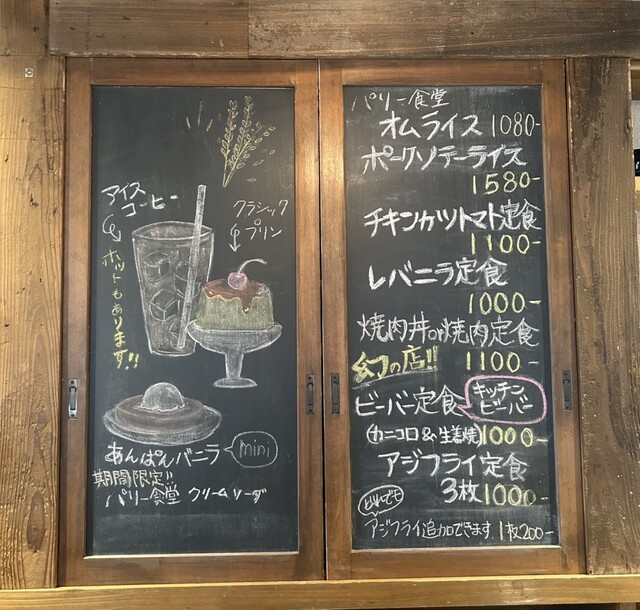 アイス
コーヒー
ホットもあります!!
クラシック
プリン
あんぱんバニラ mini
期間限定!!
パリー食堂 クリームソーダ
パリー食堂
オムライス 1080-
ポークソテーライス
1580-
チキンカツトマト定食
1100-
レバニラ定食
1000-
焼肉丼or焼肉定食
幻の店!! 1100-
ビーバー定食 キッチン
ビーバー
(カニコロ&生姜焼) 1000-
アジフライ定食
3枚 1000-
どれでも
アジフライ追加できます 1枚200-